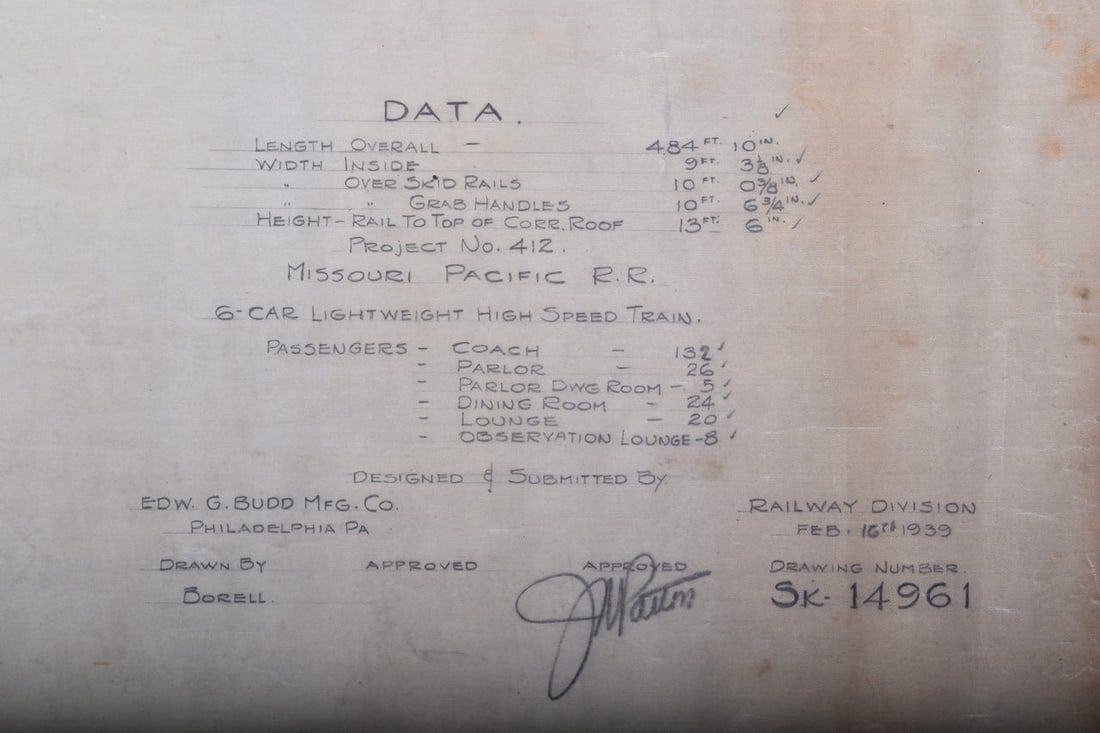 DATA.
LENGTH OVERALL – 484 FT. 10 IN. ✓
WIDTH INSIDE 9 FT. 3 1/8 IN. ✓
" OVER SKID RAILS 10 FT. 0 3/8 IN. ✓
" " GRAB HANDLES 10 FT. 6 3/4 IN. ✓
HEIGHT – RAIL TO TOP OF CORR. ROOF 13 FT. 6 IN. ✓
PROJECT NO. 412.
MISSOURI PACIFIC R.R.
6-CAR LIGHTWEIGHT HIGH SPEED TRAIN.
PASSENGERS – COACH – 132 ✓
– PARLOR – 26 ✓
– PARLOR DWG ROOM – 5 ✓
– DINING ROOM – 24 ✓
– LOUNGE – 20 ✓
– OBSERVATION LOUNGE – 8 ✓
DESIGNED & SUBMITTED BY
EDW. G. BUDD MFG. CO. RAILWAY DIVISION
PHILADELPHIA PA FEB. 16th 1939
DRAWN BY APPROVED APPROVED DRAWING NUMBER.
BORELL. SK-14961